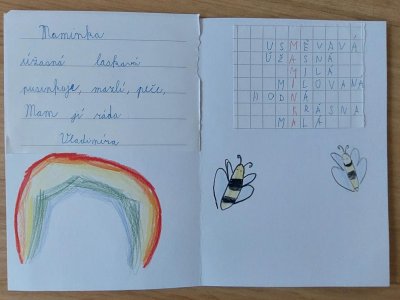 Maminka
úžasná laskavá
pusinkuje, mazlí, peče,
Mám jí ráda
Vladimíra
USMĚVAVÁ
ÚŽASNÁ
MILÁ
MILOVANÁ
HODNÁ
KRÁSNÁ
MALÁ